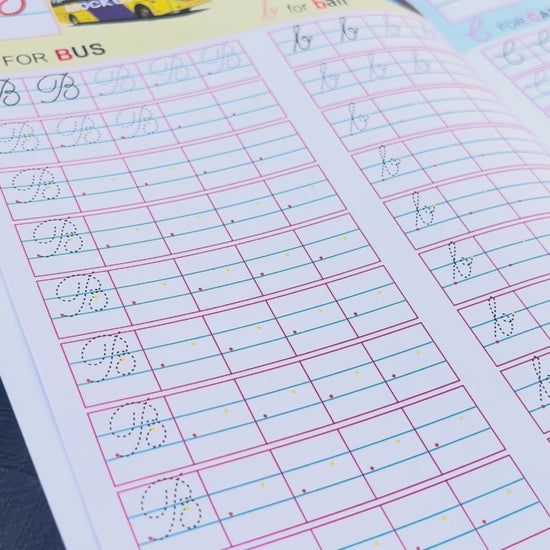 b for ball
FOR BUS
B B B B B
B B B
B
B
B
B
B
B
b b b b
b b b b
b
b
b
b
b
b